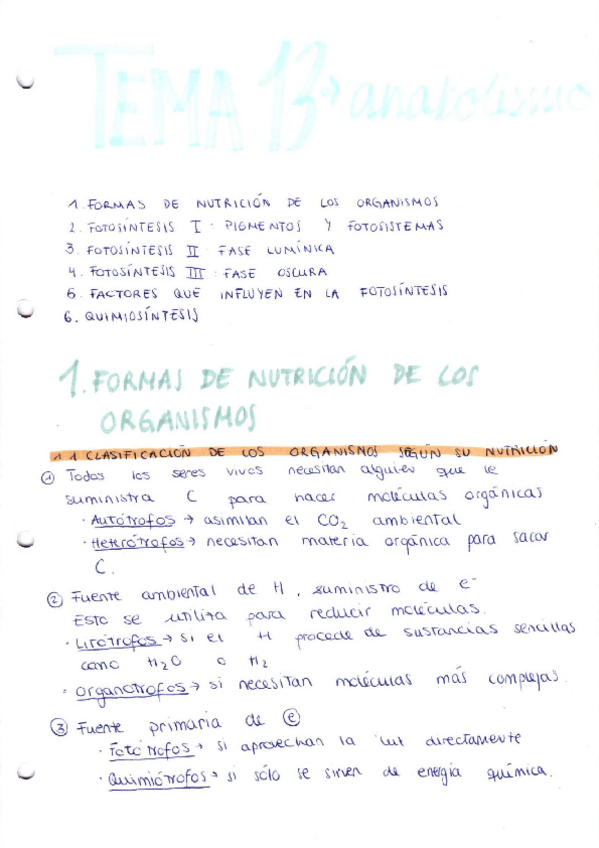 TEMA 13 → anabolismo
1. FORMAS DE NUTRICIÓN DE LOS ORGANISMOS
2. FOTOSÍNTESIS I: PIGMENTOS Y FOTOSISTEMAS
3. FOTOSÍNTESIS II: FASE LUMÍNICA
4. FOTOSÍNTESIS III: FASE OSCURA
5. FACTORES QUE INFLUYEN EN LA FOTOSÍNTESIS
6. QUIMIOSÍNTESIS
1. FORMAS DE NUTRICIÓN DE LOS
ORGANISMOS
1.1 CLASIFICACIÓN DE LOS ORGANISMOS SEGÚN SU NUTRICIÓN
① Todos los seres vivos necesitan alguien que le
suministra C para hacer moléculas orgánicas
· Autótrofos → asimilan el CO₂ ambiental
· Heterótrofos → necesitan materia orgánica para sacar
C.
② Fuente ambiental de H, suministro de e⁻
Esto se utiliza para reducir moléculas.
· Litótrofos → si el H procede de sustancias sencillas
como H₂O o H₂
· Organotrofos → si necesitan moléculas más complejas.
③ Fuente primaria de ⓔ
· Fotótrofos → si aprovechan la luz directamente
· Quimiótrofos → si sólo se sirven de energía química.